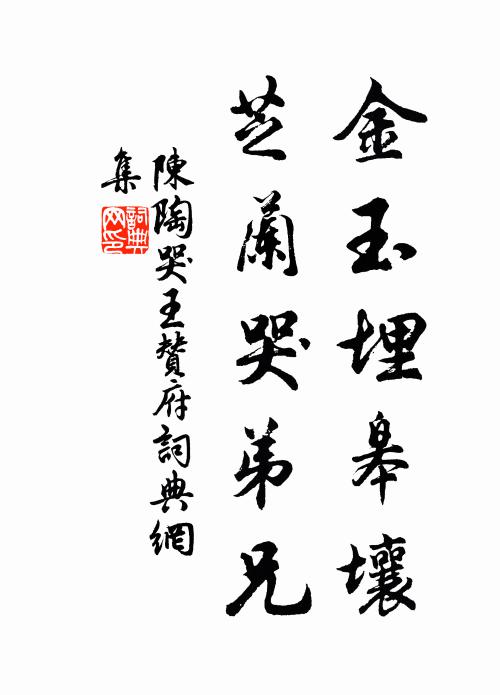 金玉埋皋壤
芝蘭哭弟兄
陳陶哭王贊府詞典網
集
詞典網印